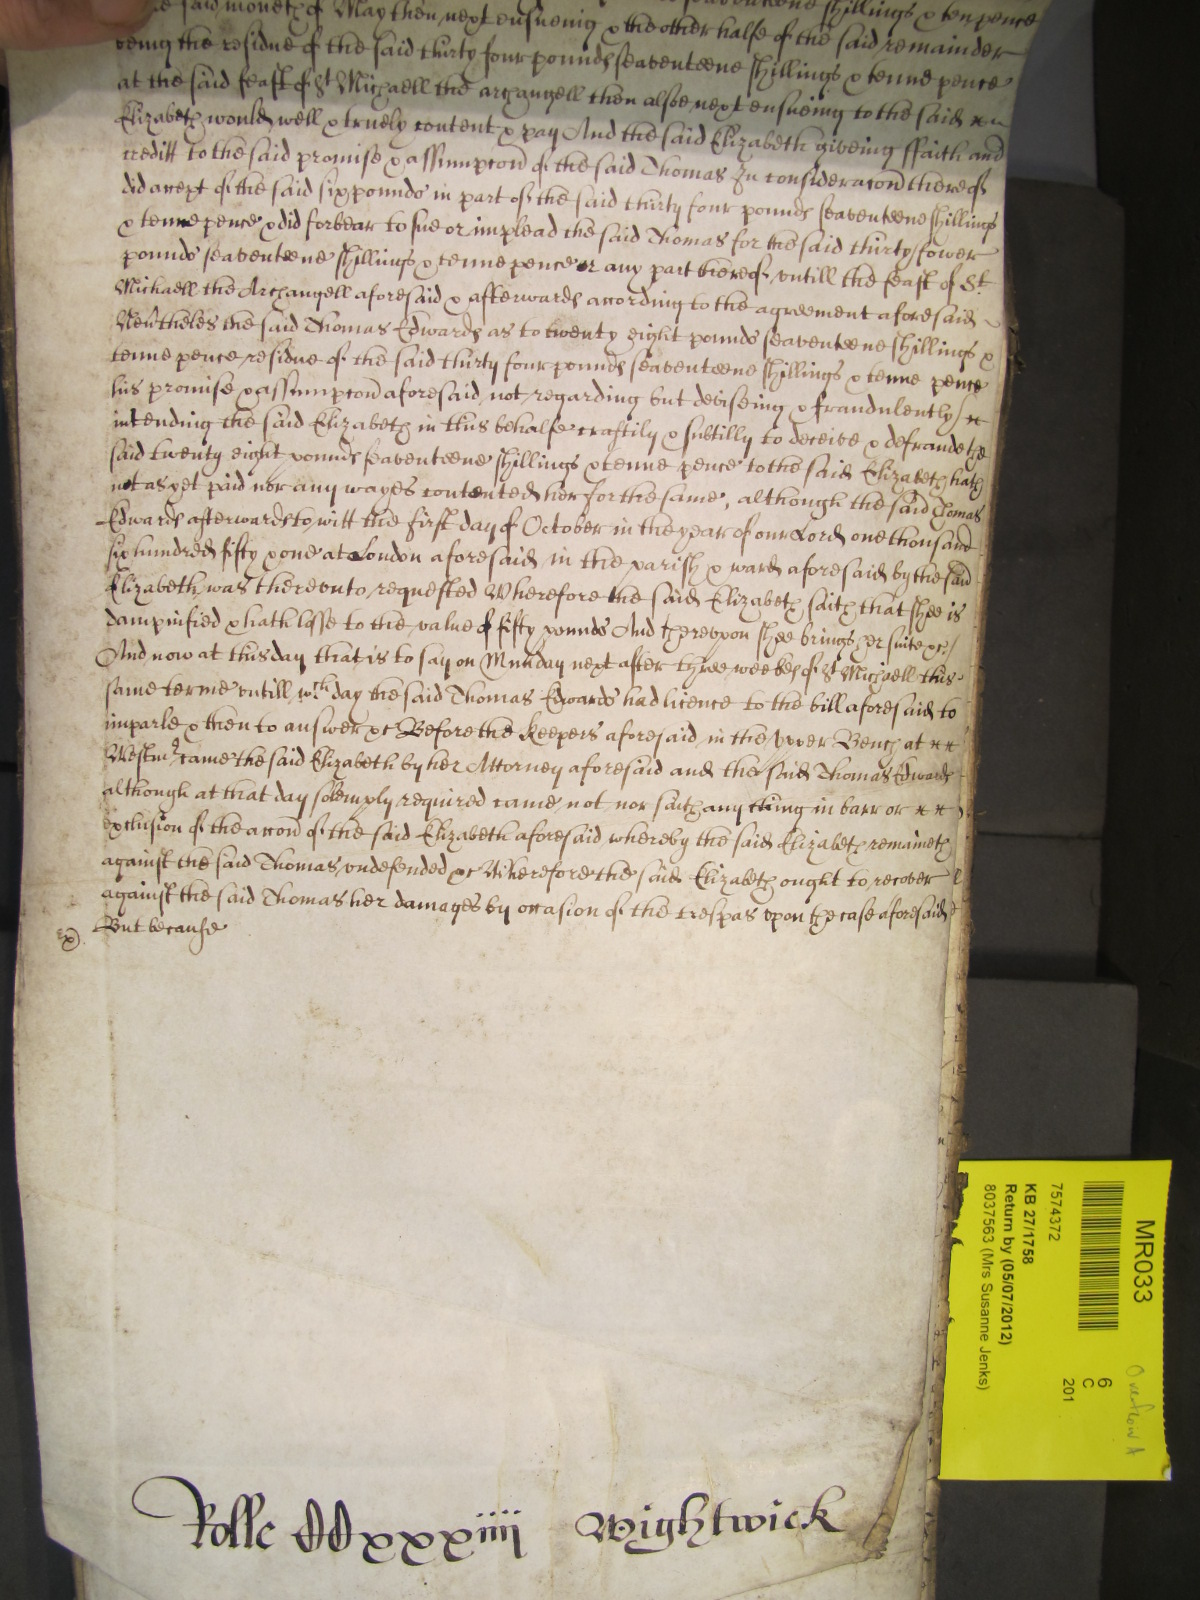 said moneth of May then next ensueing & the other halfe of the said remainder seaventeene shillings & ten pence
being the residue of the said thirty four pounds seaventeene shillings & tenne pence
at the said feast of St Michaell the archangell then alsoe next ensueing to the said
Elizabeth would well & truely content & pay And the said Elizabeth giveing ffaith and
creditt to the said promise & assumpcon of the said Thomas In consideracon thereof
did accept of the said six pounds in part of the said thirty four pounds seaventeene shillings
& tenne pence & did forbear to sue or implead the said Thomas for the said thirty fower
pounds seaventeene shillings & tenne pence or any part thereof untill the feast of St
Michaell the Archangell aforesaid & afterwards according to the agreement aforesaid
Nevtheles the said Thomas Edwards as to twenty eight pounds seaventeene shillings &
tenne pence residue of the said thirty four pounds seaventeene shillings & tenne pence
his promise & assumpcon aforesaid not regarding but deviseing & fraudulently
intending the said Elizabeth in this behalfe craftily & subtilly to deceive & defraude the
said twenty eight pounds seaventeene shillings & tenne pence to the said Elizabeth hath
not as yet paid nor any wayes contented her for the same, although the said Thomas
Edwards afterwards to witt the first day of October in the year of our Lord one thousand
six hundred fifty & one at London aforesaid in the parish & ward aforesaid by the said
Elizabeth was thereunto requested Wherefore the said Elizabeth saith that shee is
dampnified & hath losse to the value of fifty pounds And thereupon shee brings her suite &c
And now at this day that is to say on Munday next after three weekes of St Michaell this
same terme untill wch day the said Thomas Edwards had licence to the bill aforesaid to
imparle & then to answer &c Before the Keepers aforesaid in the upper Bench at
Westmr came the said Elizabeth by her Attorney aforesaid and the said Thomas Edwards
although at that day solemply required came not nor saith any thing in barr or
exclusion of the accon of the said Elizabeth aforesaid whereby the said Elizabeth remaineth
against the said Thomas undefended &c Wherefore the said Elizabeth ought to recover
against the said Thomas her damages by occasion of the trespas upon the case aforesaid
But because
Rolle DDxxxiiii Wightwick
MR033
7574372
6
C
201
KB 27/1758
Return by (05/07/2012)
8037563 (Mrs Susanne Jenks)
Overflow A